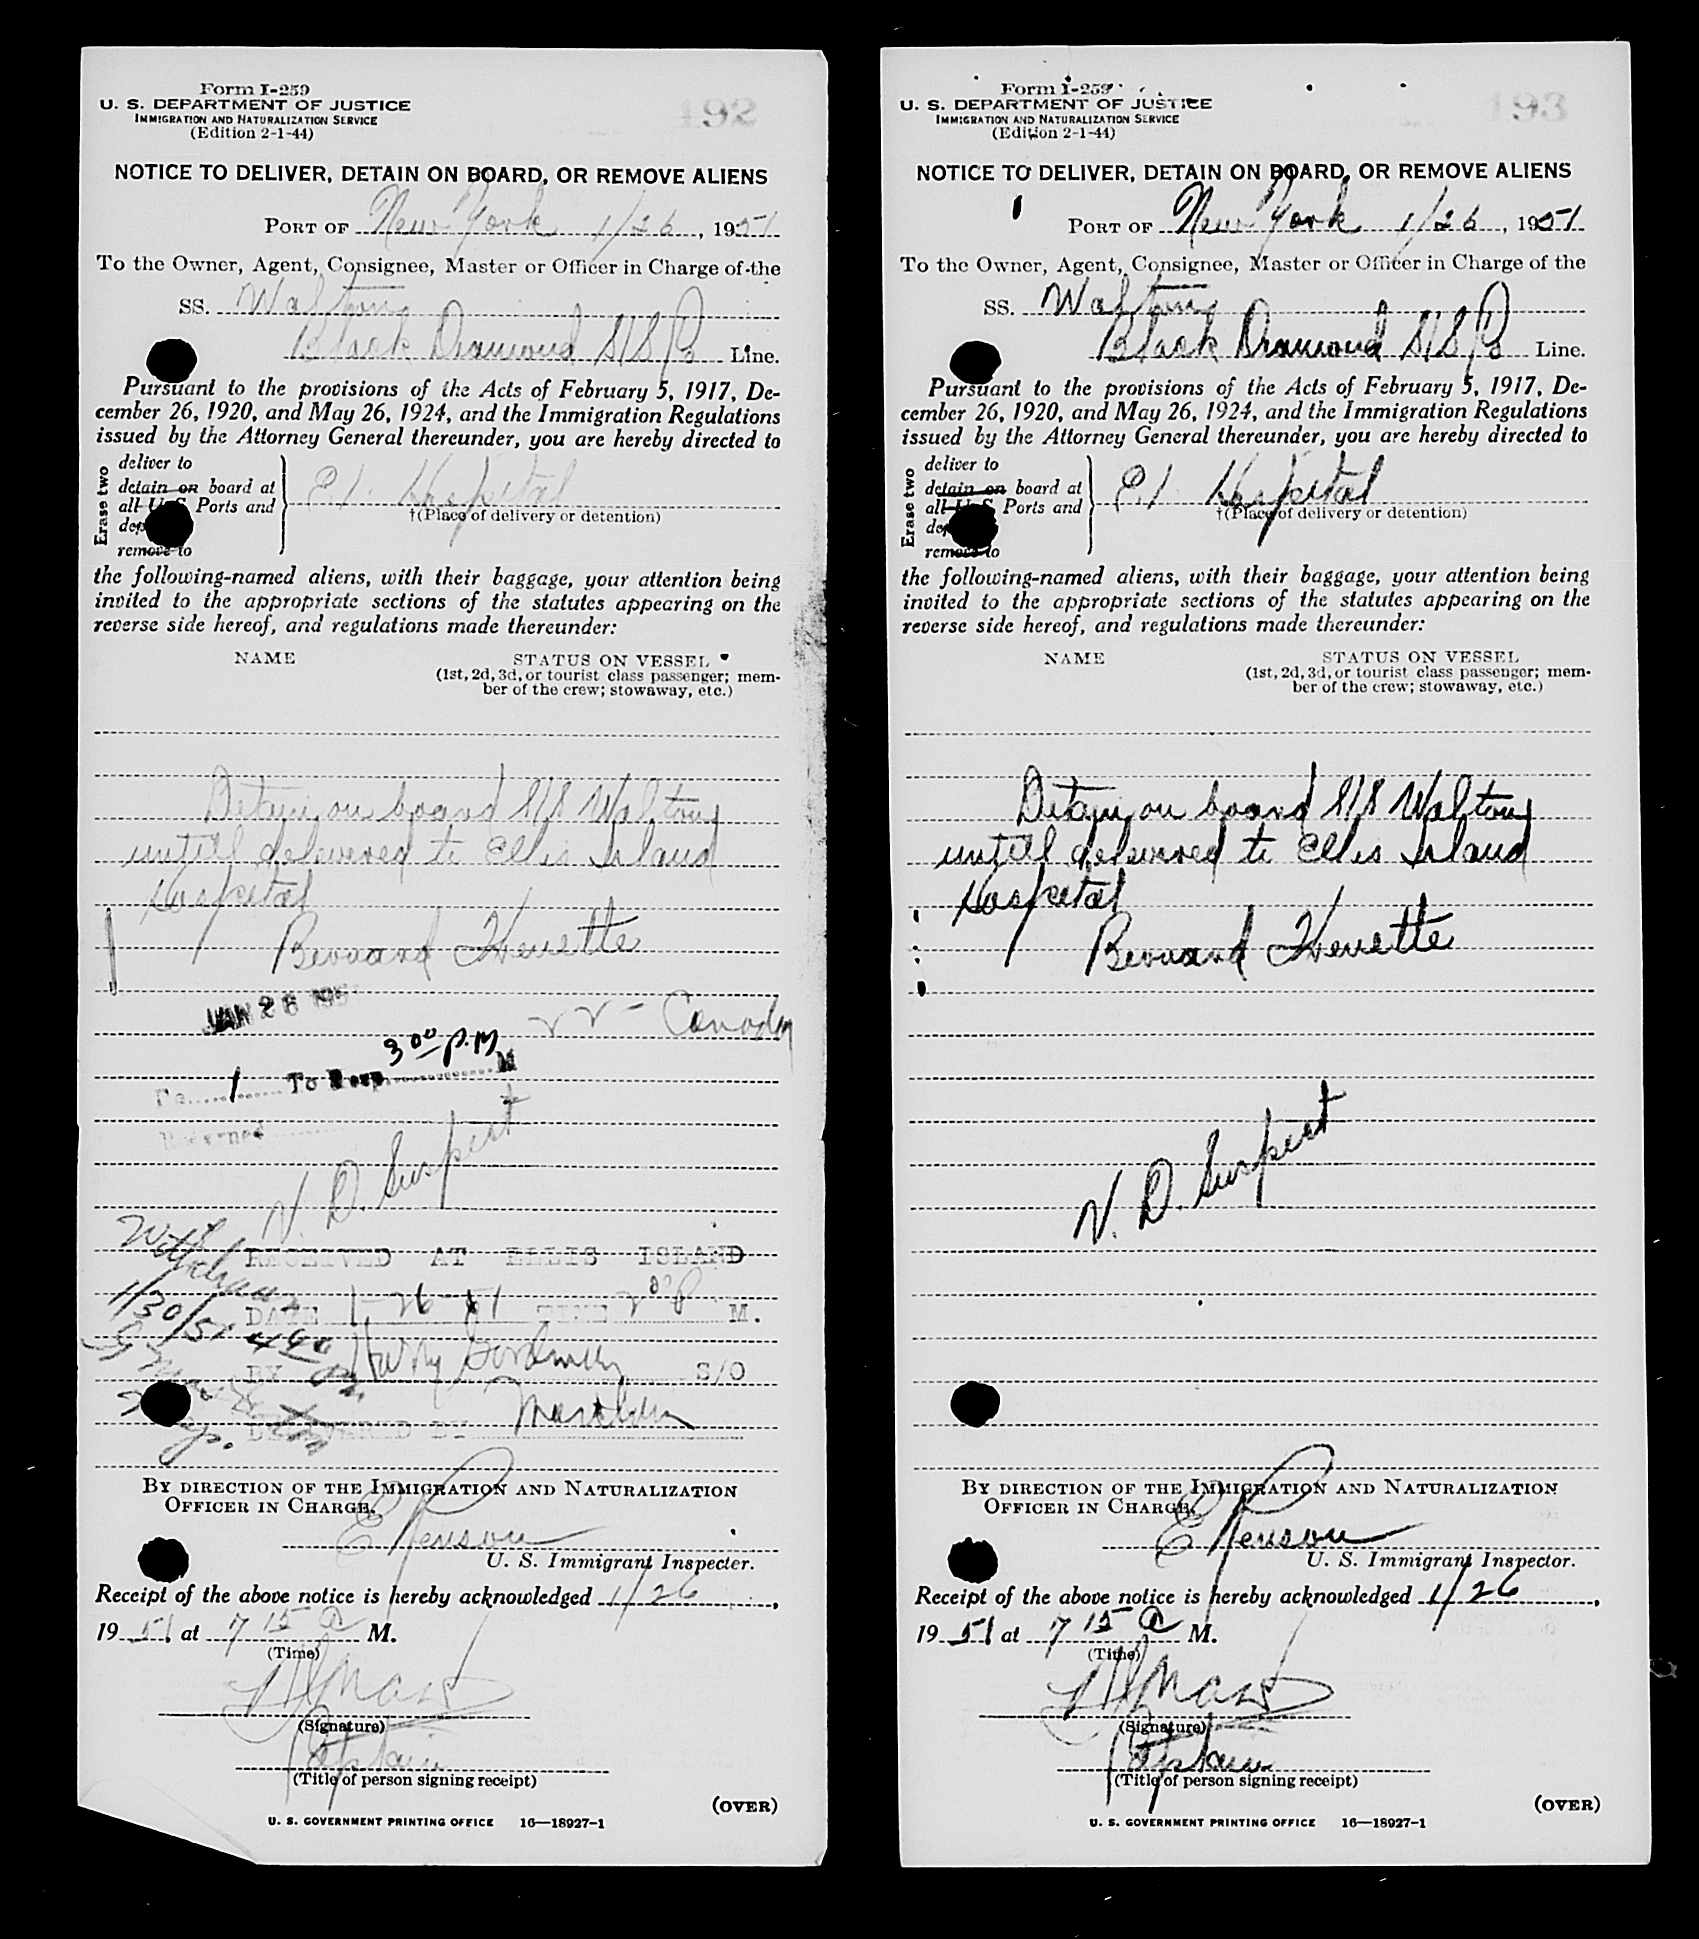 Form I-259
U. S. DEPARTMENT OF JUSTICE
IMMIGRATION AND NATURALIZATION SERVICE
(Edition 2-1-44)
192
NOTICE TO DELIVER, DETAIN ON BOARD, OR REMOVE ALIENS
PORT OF New York 1/26, 1951
To the Owner, Agent, Consignee, Master or Officer in Charge of the
SS. Waltons
Black Diamond S/S Line.
Pursuant to the provisions of the Acts of February 5, 1917, De-
cember 26, 1920, and May 26, 1924, and the Immigration Regulations
issued by the Attorney General thereunder, you are hereby directed to
Erase two
deliver to
detain on board at
all U. S. Ports and
remove to
E.I. Hospital
†(Place of delivery or detention)
the following-named aliens, with their baggage, your attention being
invited to the appropriate sections of the statutes appearing on the
reverse side hereof, and regulations made thereunder:
NAME STATUS ON VESSEL
(1st, 2d, 3d, or tourist class passenger; mem-
ber of the crew; stowaway, etc.)
Detain on board S/S Waltons
untill delevered to Ellis Island
Hospital
Bernard
JAN 26
Canada
3 00 P.M
1 To M
V. D. Suspect
Withdrawn
RECEIVED AT ELLIS ISLAND
1/30/51 4
DATE 1-26-51 TIME 2 P M.
BY Harry S/O
DELIVERED BY
BY DIRECTION OF THE IMMIGRATION AND NATURALIZATION
OFFICER IN CHARGE,
E
U. S. Immigrant Inspector.
Receipt of the above notice is hereby acknowledged 1/26,
19 51 at 7 15 a M.
(Time)
(Signature)
Captain
(Title of person signing receipt)
(OVER)
U. S. GOVERNMENT PRINTING OFFICE 16—18927-1
Form I-259
U. S. DEPARTMENT OF JUSTICE
IMMIGRATION AND NATURALIZATION SERVICE
(Edition 2-1-44)
193
NOTICE TO DELIVER, DETAIN ON BOARD, OR REMOVE ALIENS
PORT OF New York 1/26, 1951
To the Owner, Agent, Consignee, Master or Officer in Charge of the
SS. Waltons
Black Diamond S/S Line.
Pursuant to the provisions of the Acts of February 5, 1917, De-
cember 26, 1920, and May 26, 1924, and the Immigration Regulations
issued by the Attorney General thereunder, you are hereby directed to
Erase two
deliver to
detain on board at
all U. S. Ports and
remove to
E.I. Hospital
†(Place of delivery or detention)
the following-named aliens, with their baggage, your attention being
invited to the appropriate sections of the statutes appearing on the
reverse side hereof, and regulations made thereunder:
NAME STATUS ON VESSEL
(1st, 2d, 3d, or tourist class passenger; mem-
ber of the crew; stowaway, etc.)
Detain on board S/S Waltons
untill delevered to Ellis Island
Hospital
Bernard
V. D. Suspect
BY DIRECTION OF THE IMMIGRATION AND NATURALIZATION
OFFICER IN CHARGE,
E
U. S. Immigrant Inspector.
Receipt of the above notice is hereby acknowledged 1/26,
19 51 at 7 15 a M.
(Time)
(Signature)
Captain
(Title of person signing receipt)
(OVER)
U. S. GOVERNMENT PRINTING OFFICE 16—18927-1